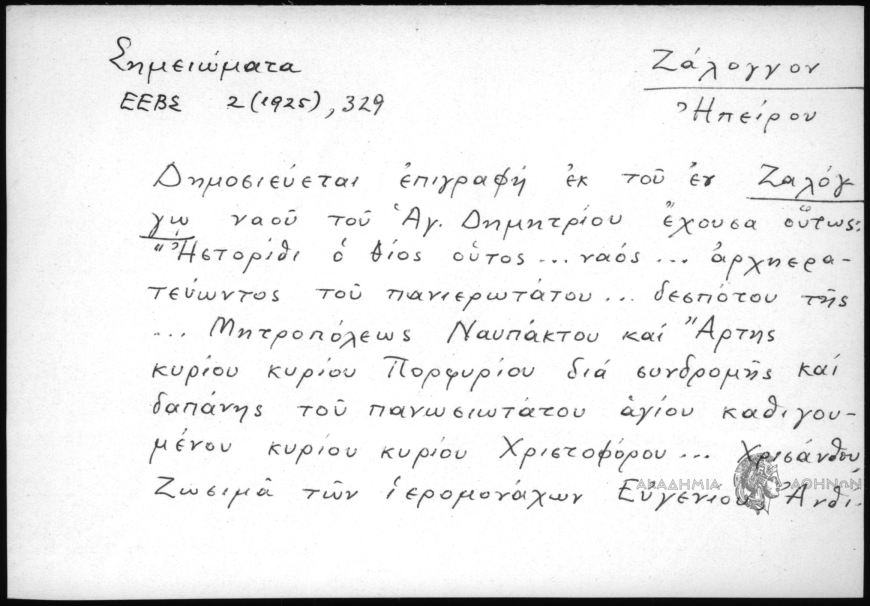 Σημειώματα
Ζάλογγον
ΕΕΒΣ 2 (1925), 329
Ἠπείρου
Δημοσιεύεται ἐπιγραφή ἐκ τοῦ ἐν Ζαλόγ
γῳ ναοῦ τοῦ Ἁγ. Δημητρίου ἔχουσα οὕτως:
"Ἠστορίθι ὁ θίος οὗτος... ναός... ἀρχηερα-
τεύωντος τοῦ πανιερωτάτου... δεσπότου τῆς
... Μητροπόλεως Ναυπάκτου καί Ἄρτης
κυρίου κυρίου Πορφυρίου διά συνδρομῆς καί
δαπάνης τοῦ πανωσιωτάτου ἁγίου καθιγου-
μένου κυρίου κυρίου Χριστοφόρου... Χρισάνθου
Ζωσιμᾶ τῶν ἱερομονάχων Εὐγενίου, Ἀνθί-
ΑΚΑΔΗΜΙΑ ΑΘΗΝΩΝ